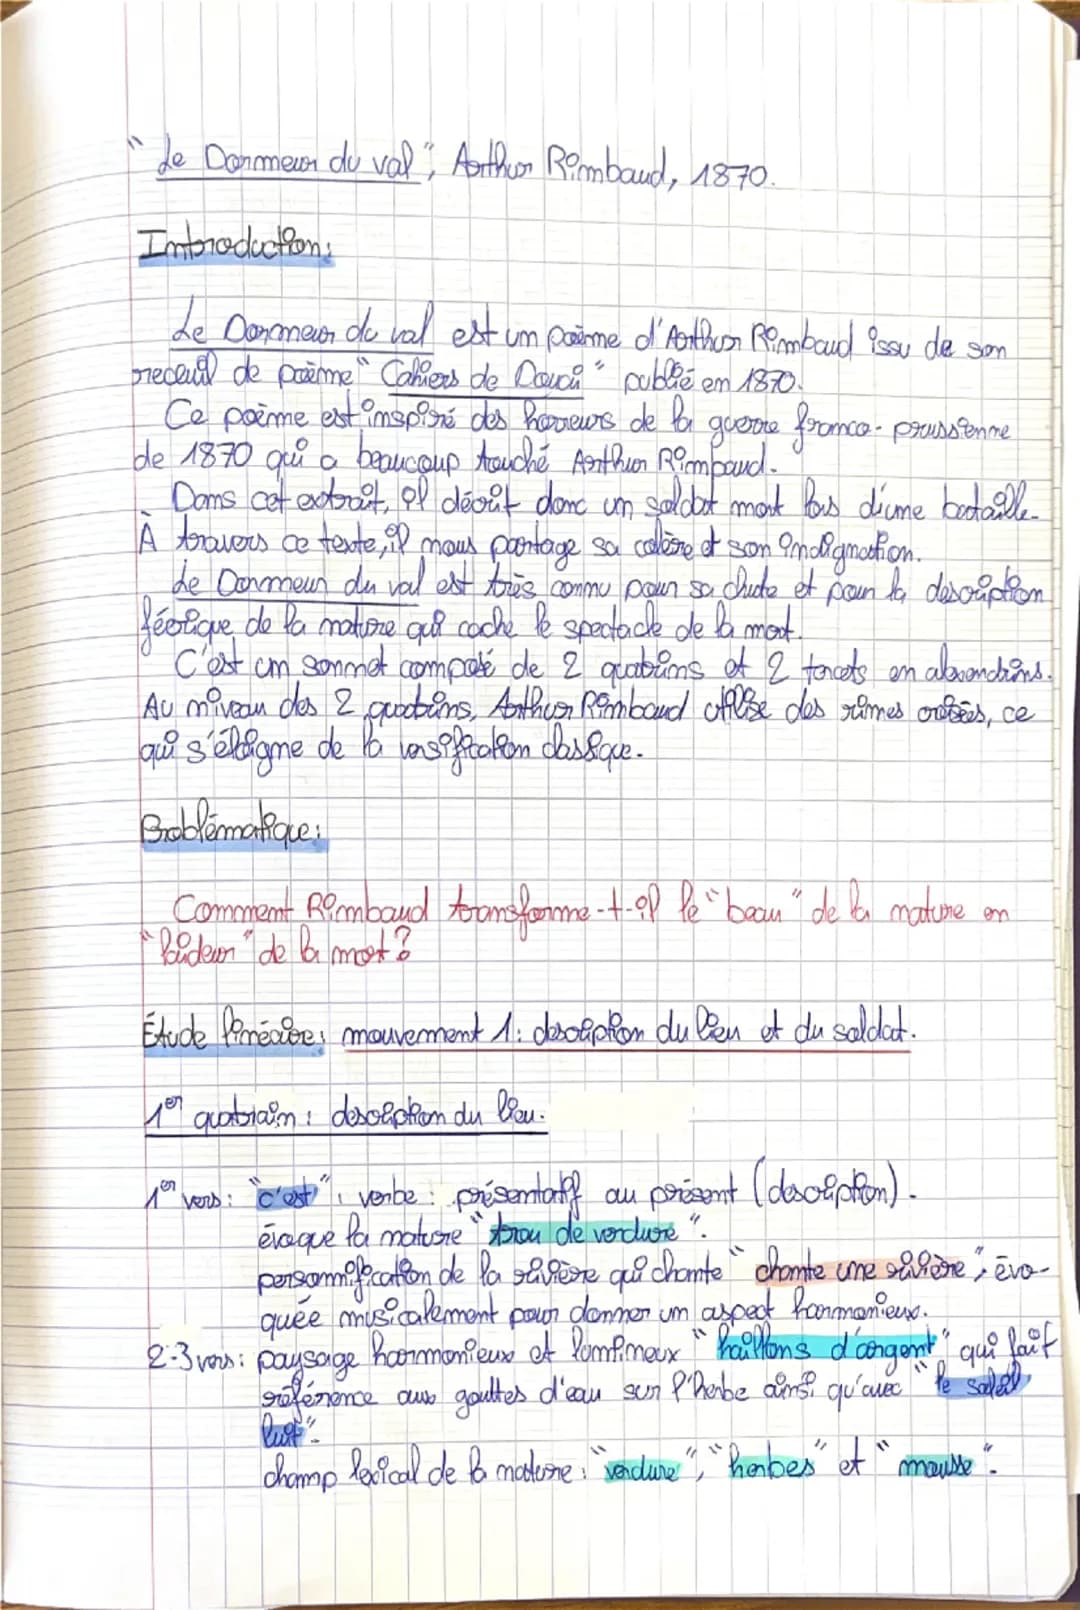 "Le Dormeur du val", Arthur Rimbaud, 1870.
Introduction:
Le Dormeur du val est un poème d'Arthur Rimbaud issu de son
receuil de poème "Cahiers de Douai" publié en 1870.
Ce poème est inspiré des horreurs de la guerre franco-prussienne
de 1870 qui a beaucoup touché Arthur Rimbaud.
Dans cet extrait, il décrit donc un soldat mort lors d'une bataille.
À travers ce texte, il nous partage sa colère et son indignation.
Le Dormeur du val est très connu pour sa chute et pour la description
féérique de la nature qui cache le spectacle de la mort.
C'est un sonnet composé de 2 quatrains et 2 tercets en alexandrins.
Au niveau des 2 quatrains, Arthur Rimbaud utilise des rimes croisées, ce
qui s'éloigne de la versification classique.
Problématique:
Comment Rimbaud transforme-t-il le "beau" de la nature en
"laideur" de la mort?
Étude linéaire: mouvement 1: description du lieu et du soldat.
1er quatrain: description du lieu.
1er vers: "c'est": verbe: présentatif au présent (description).
évoque la nature "trou de verdure".
personnification de la rivière qui chante "chante une rivière", évo-
quée musicalement pour donner un aspect harmonieux.
2-3 vers: paysage harmonieux et lumineux "haillons d'argent" qui fait
référence aux gouttes d'eau sur l'herbe ainsi qu'avec "le soleil
luit".
champ lexical de la nature: "verdure", "herbes" et "mousse".